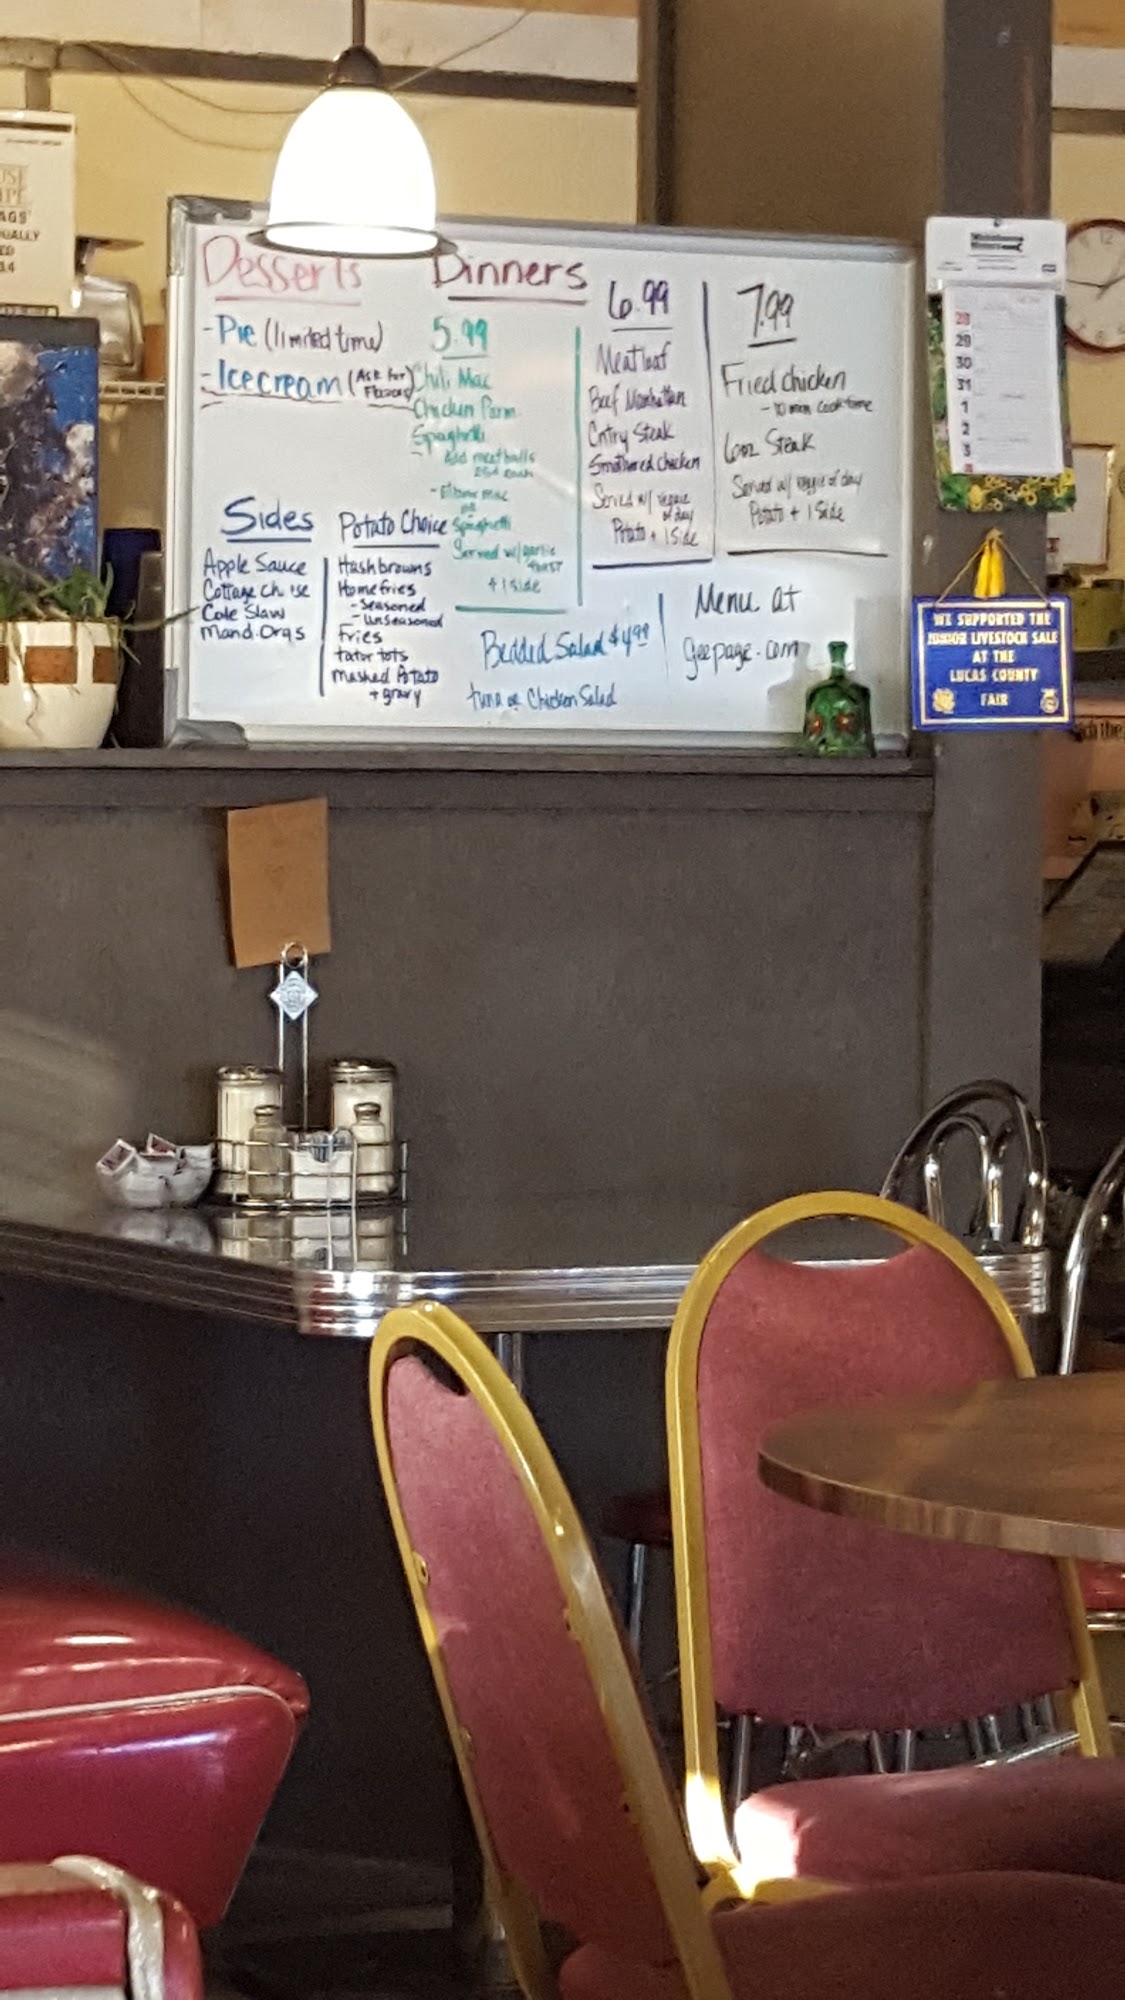 Desserts
- Pie (limited time)
- Icecream (Ask for Flavors)
Dinners
5.99
Chili Mac
Chicken Parm
Spaghetti
Add meatballs
- Elbow mac
or
Spaghetti
Served w/ garlic
toast
+ 1 side
6.99
Meatloaf
Beef Manhattan
Cntry Steak
Smothered Chicken
Served w/ veggie
of day
Potato + 1 Side
7.99
Fried chicken
- 10 min cook time
6oz Steak
Served w/ veggie of day
Potato + 1 Side
Sides
Apple Sauce
Cottage Cheese
Cole Slaw
Mand Orgs
Potato Choice
Hashbrowns
Homefries
- Seasoned
- Unseasoned
Fries
tator tots
mashed Potato
+ gravy
Bedded Salad $4.99
tuna or Chicken Salad
Menu at
geepage.com
28
29
30
31
1
2
3
WE SUPPORTED THE
JUNIOR LIVESTOCK SALE
AT THE
LUCAS COUNTY
FAIR